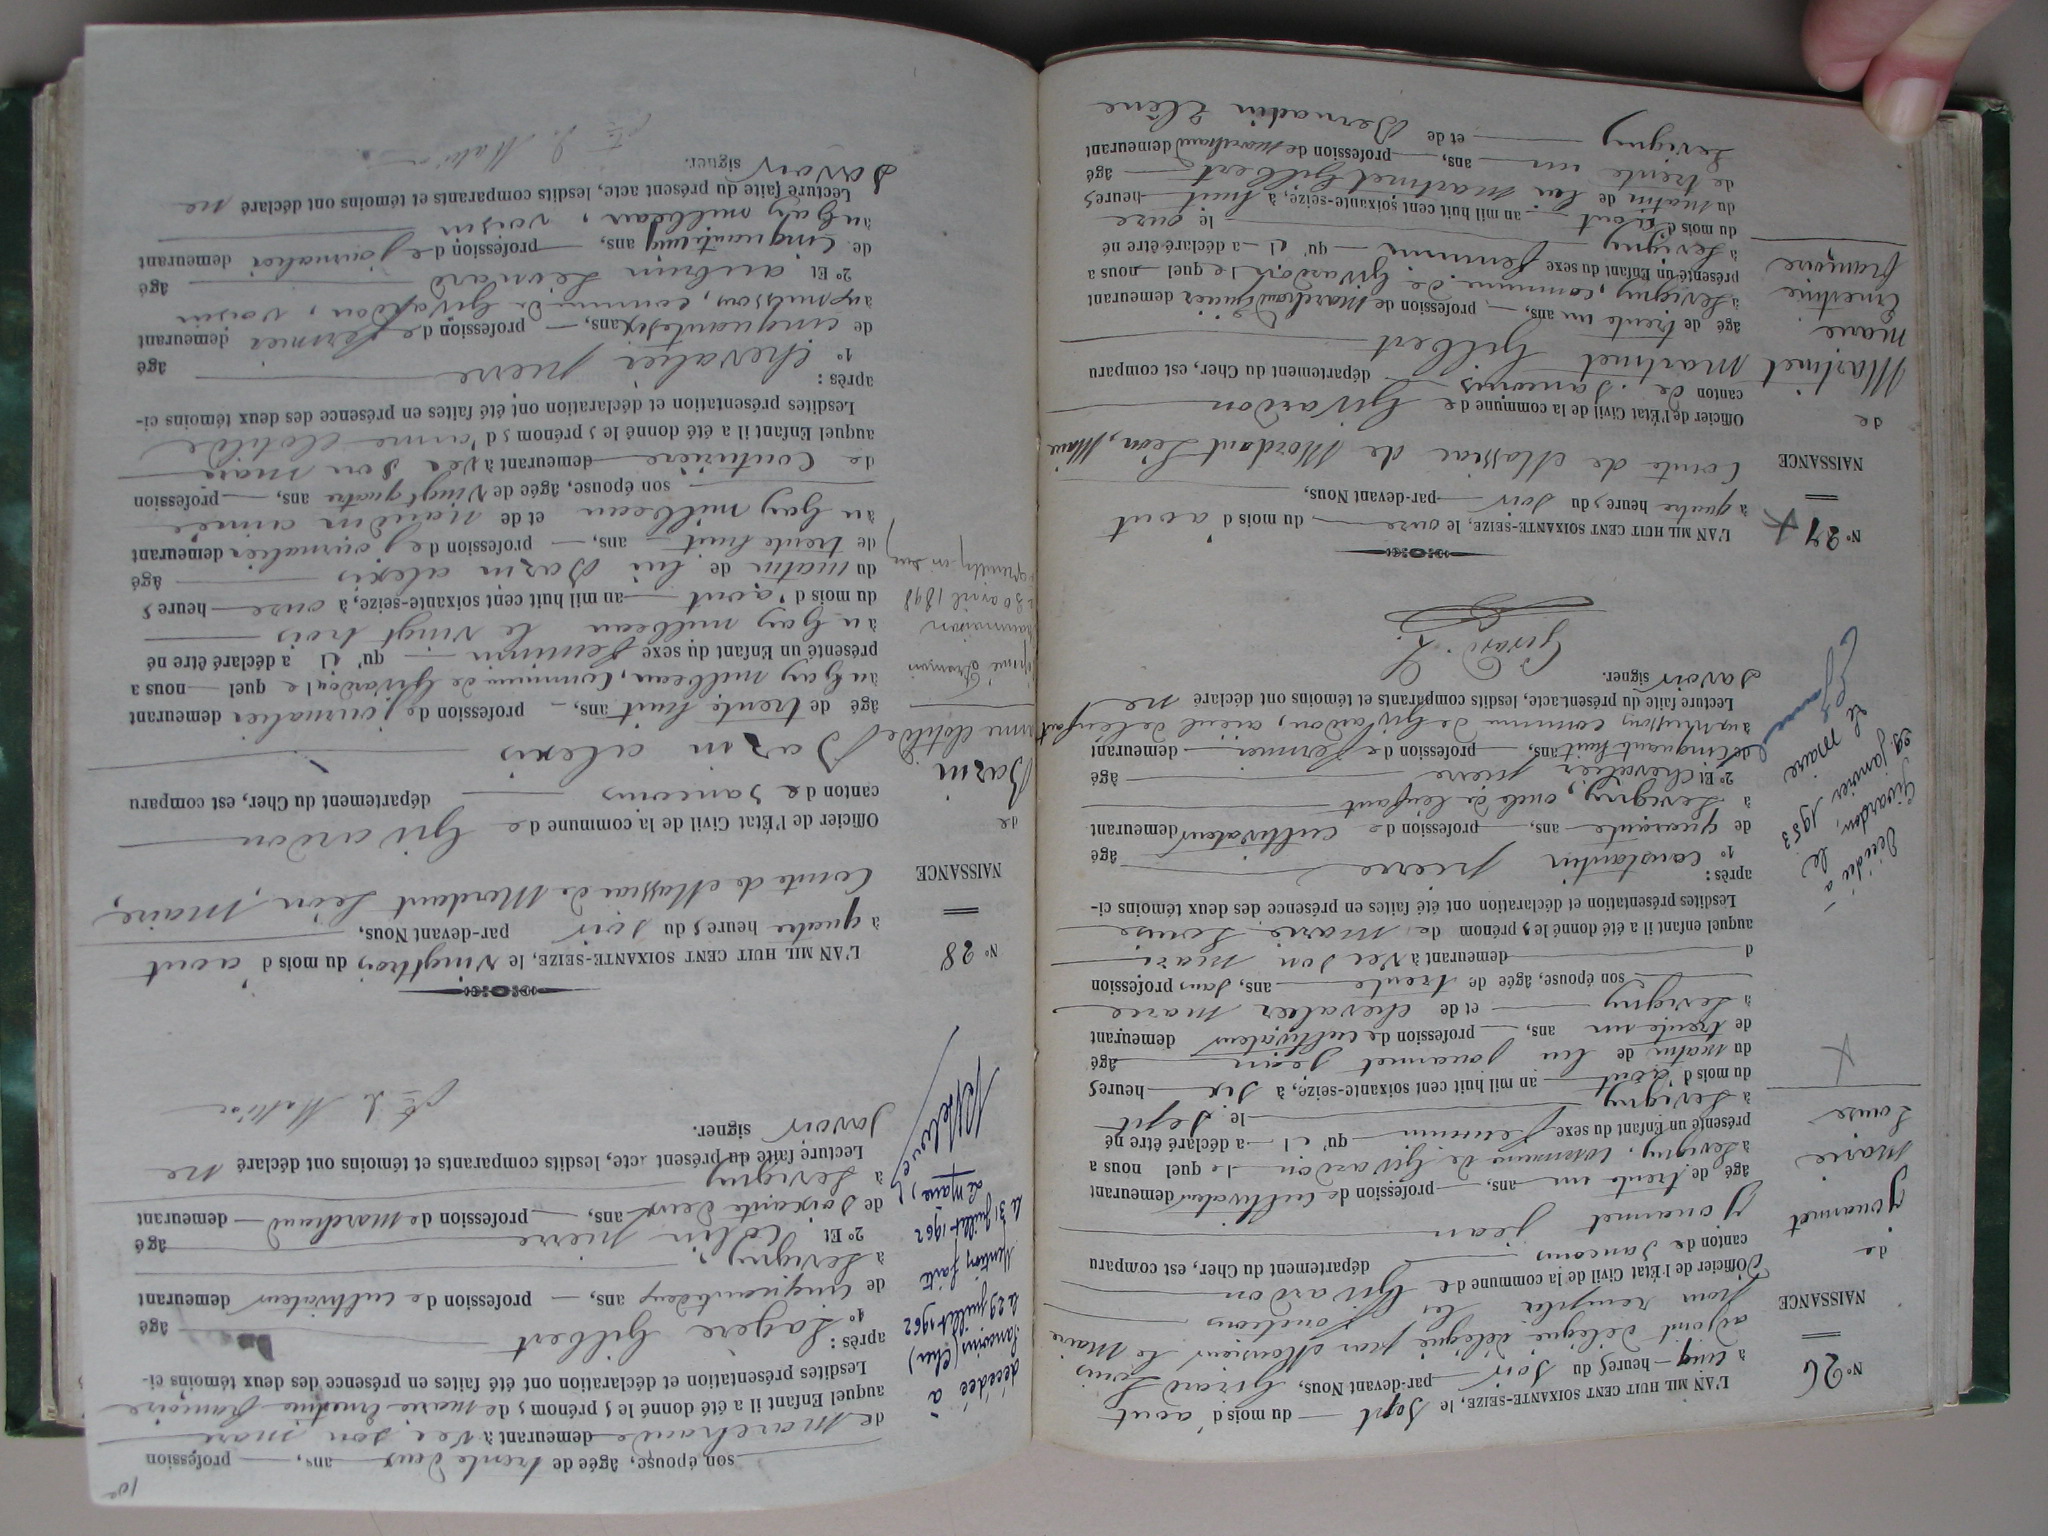 N° 26
NAISSANCE
de
Jouannet
Marie
Louise
L'AN MIL HUIT CENT SOIXANTE-SEIZE, le Sept du mois d'août
à cinq heures du Soir par-devant Nous, Girard Louis
adjoint délégué délégué par Monsieur le Maire
pour remplir les fonctions
d'Officier de l'État Civil de la commune de Givardon
canton de Sancoins département du Cher, est comparu
Jouannet Jean
âgé de trente un ans, profession de Cultivateur demeurant
à Sevigny, Commune de Givardon le quel nous a
présenté un Enfant du sexe féminin qu'il a déclaré être né
à Sevigny le Sept
du mois d'août an mil huit cent soixante-seize, à Six heures
du matin de lui Jouannet Jean âgé
de trente un ans, profession de Cultivateur demeurant
à Sevigny et de Chevalier Marie
son épouse, âgée de trente ans, Sans profession
d demeurant avec Son mari
auquel enfant il a été donné les prénom de Marie Louise
Lesdites présentation et déclaration ont été faites en présence des deux témoins ci-
après :
1° Constantin pierre âgé
de quarante ans, profession de Cultivateur demeurant
à Sevigny, oncle de l'enfant
2° Et Chevalier pierre âgé
de Cinquante huit ans, profession de fermier demeurant
aux commune de Givardon, aïeul de l'enfant
Lecture faite du présent acte, lesdits comparants et témoins ont déclaré ne
Savoir signer.
Girard L.
Décédé à
Givardon, le
29 Janvier 1953
Le Maire
N° 27
NAISSANCE
de
Martinet
Marie
Ernestine
françoise
L'AN MIL HUIT CENT SOIXANTE-SEIZE, le onze du mois d'août
à quatre heures du Soir par-devant Nous,
Comte de Massiac de Mordant Léon, Maire
Officier de l'État Civil de la commune de Givardon
canton de Sancoins département du Cher, est comparu
Martinet Gilbert
âgé de trente un ans, profession de Marchand demeurant
à Sevigny, commune de Givardon le quel nous a
présenté un Enfant du sexe féminin qu'il a déclaré être né
à Sevigny le onze
du mois d'août an mil huit cent soixante-seize, à huit heures
du matin de lui Martinet Gilbert âgé
de trente un ans, profession de Marchand demeurant
Sevigny et de Bernadin
son épouse, âgée de trente deux ans, profession
de Marchande demeurant avec son mari
auquel Enfant il a été donné les prénoms de Marie Ernestine françoise
Lesdites présentation et déclaration ont été faites en présence des deux témoins ci-
après :
1° Lagère Gilbert âgé
de Cinquante deux ans, profession de Cultivateur demeurant
à Sevigny,
2° Et Colin pierre âgé
de Soixante deux ans, profession de Marchand demeurant
à Sevigny
Lecture faite du présent acte, lesdits comparants et témoins ont déclaré ne
Savoir signer.
décédée à
Sancoins (Cher)
le 29 juillet 1962
Mention faite
le 31 juillet 1962
Le Maire,
N° 28
NAISSANCE
de
Bazin
anne Clotilde
L'AN MIL HUIT CENT SOIXANTE-SEIZE, le vingt trois du mois d'août
à quatre heures du soir par-devant Nous,
Comte de Massiac de Mordant Léon Maire,
Officier de l'État Civil de la commune de Givardon
canton de Sancoins département du Cher, est comparu
Bazin alexis
âgé de trente huit ans, profession de journalier demeurant
au Gay milbeau, Commune de Givardon le quel nous a
présenté un Enfant du sexe féminin qu'il a déclaré être né
au Gay milbeau le vingt trois
du mois d'août an mil huit cent soixante-seize, à onze heures
du matin de lui Bazin alexis âgé
de trente huit ans, profession de journalier demeurant
au Gay milbeau et de
son épouse, âgée de vingt quatre ans, profession
de Couturière demeurant avec Son mari
auquel Enfant il a été donné les prénoms d'anne Clotilde
Lesdites présentation et déclaration ont été faites en présence des deux témoins ci-
après :
1° Chevalier pierre âgé
de cinquante six ans, profession de fermier demeurant
commune de Givardon, voisin
2° Et aubrun Léonard âgé
de Cinquante cinq ans, profession de journalier demeurant
au Gay milbeau, voisin
Lecture faite du présent acte, lesdits comparants et témoins ont déclaré ne
Savoir signer.
30 avril 1898